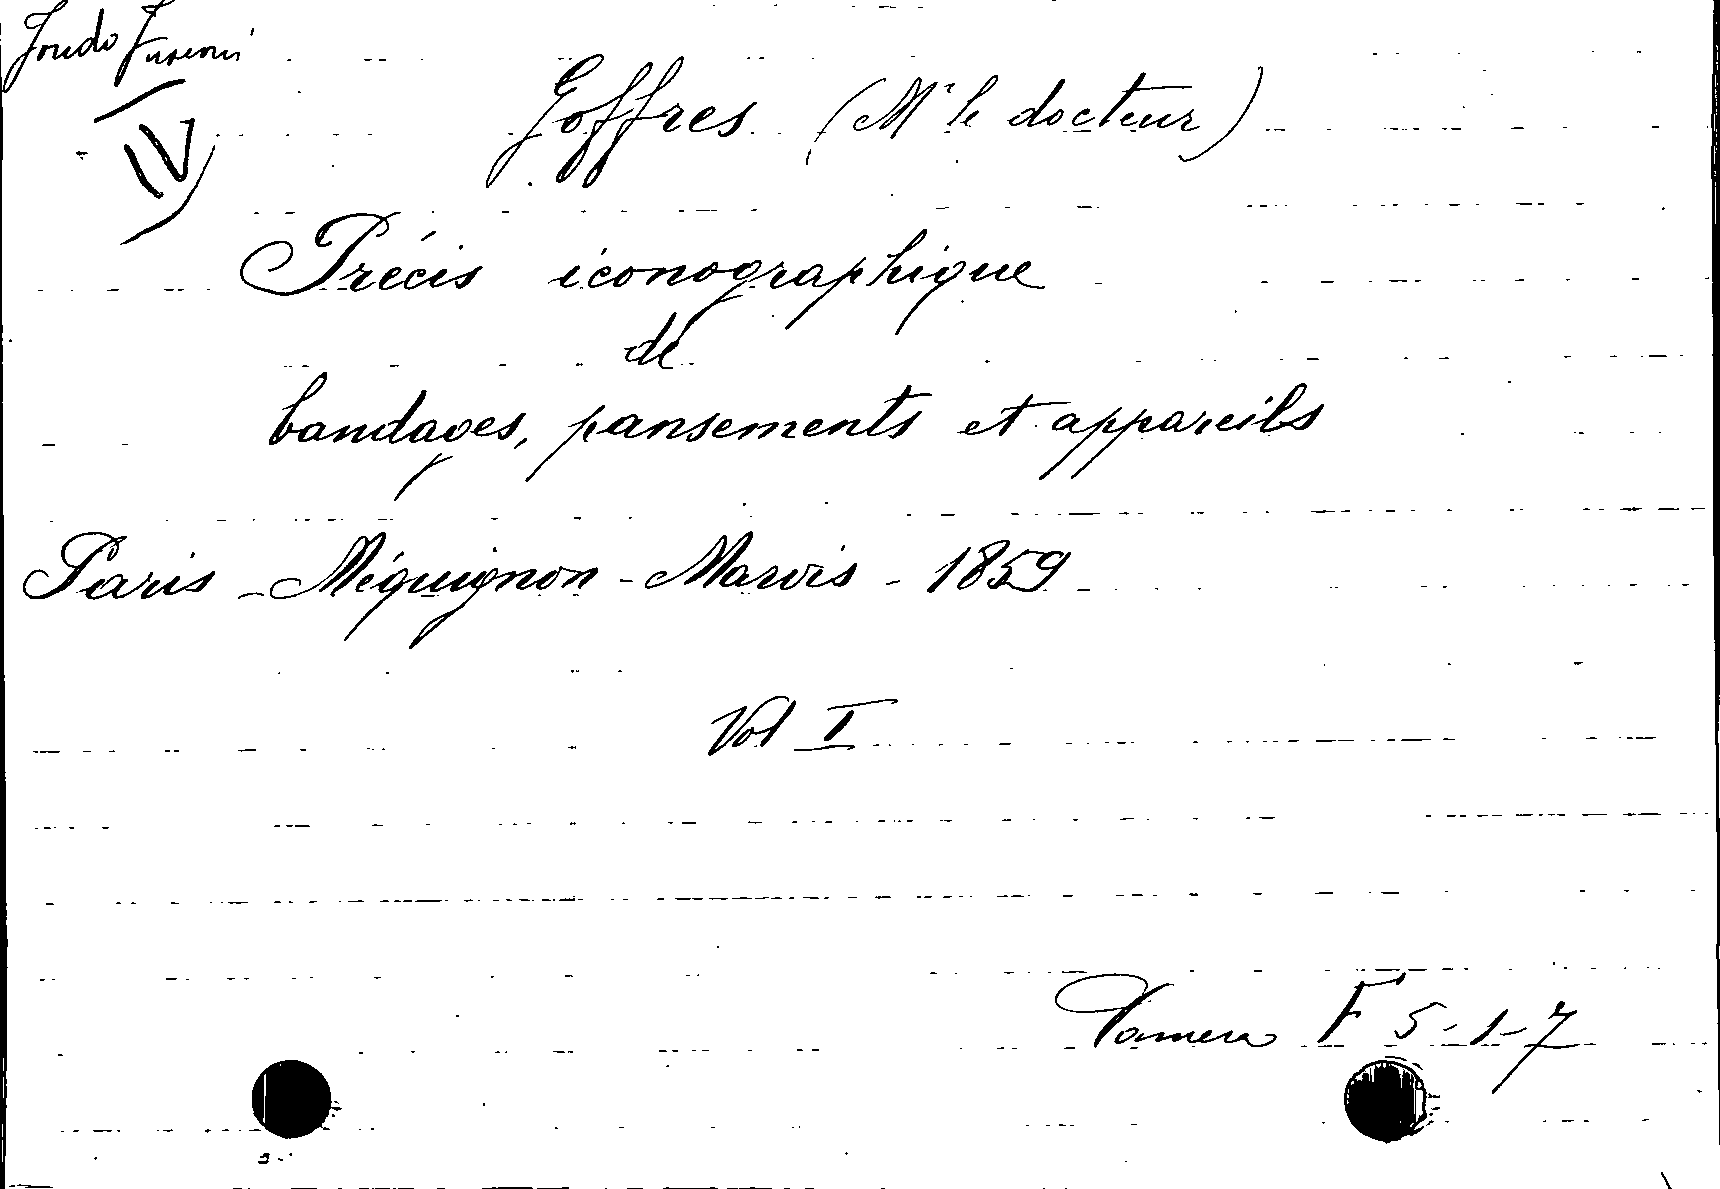 Fondo Fusconi
IV
Goffres (Mr le docteur)
Précis iconographique
de
bandages, pansements et appareils
Paris - Méquignon-Marvis - 1859
Vol I
Camera F 5-1-7